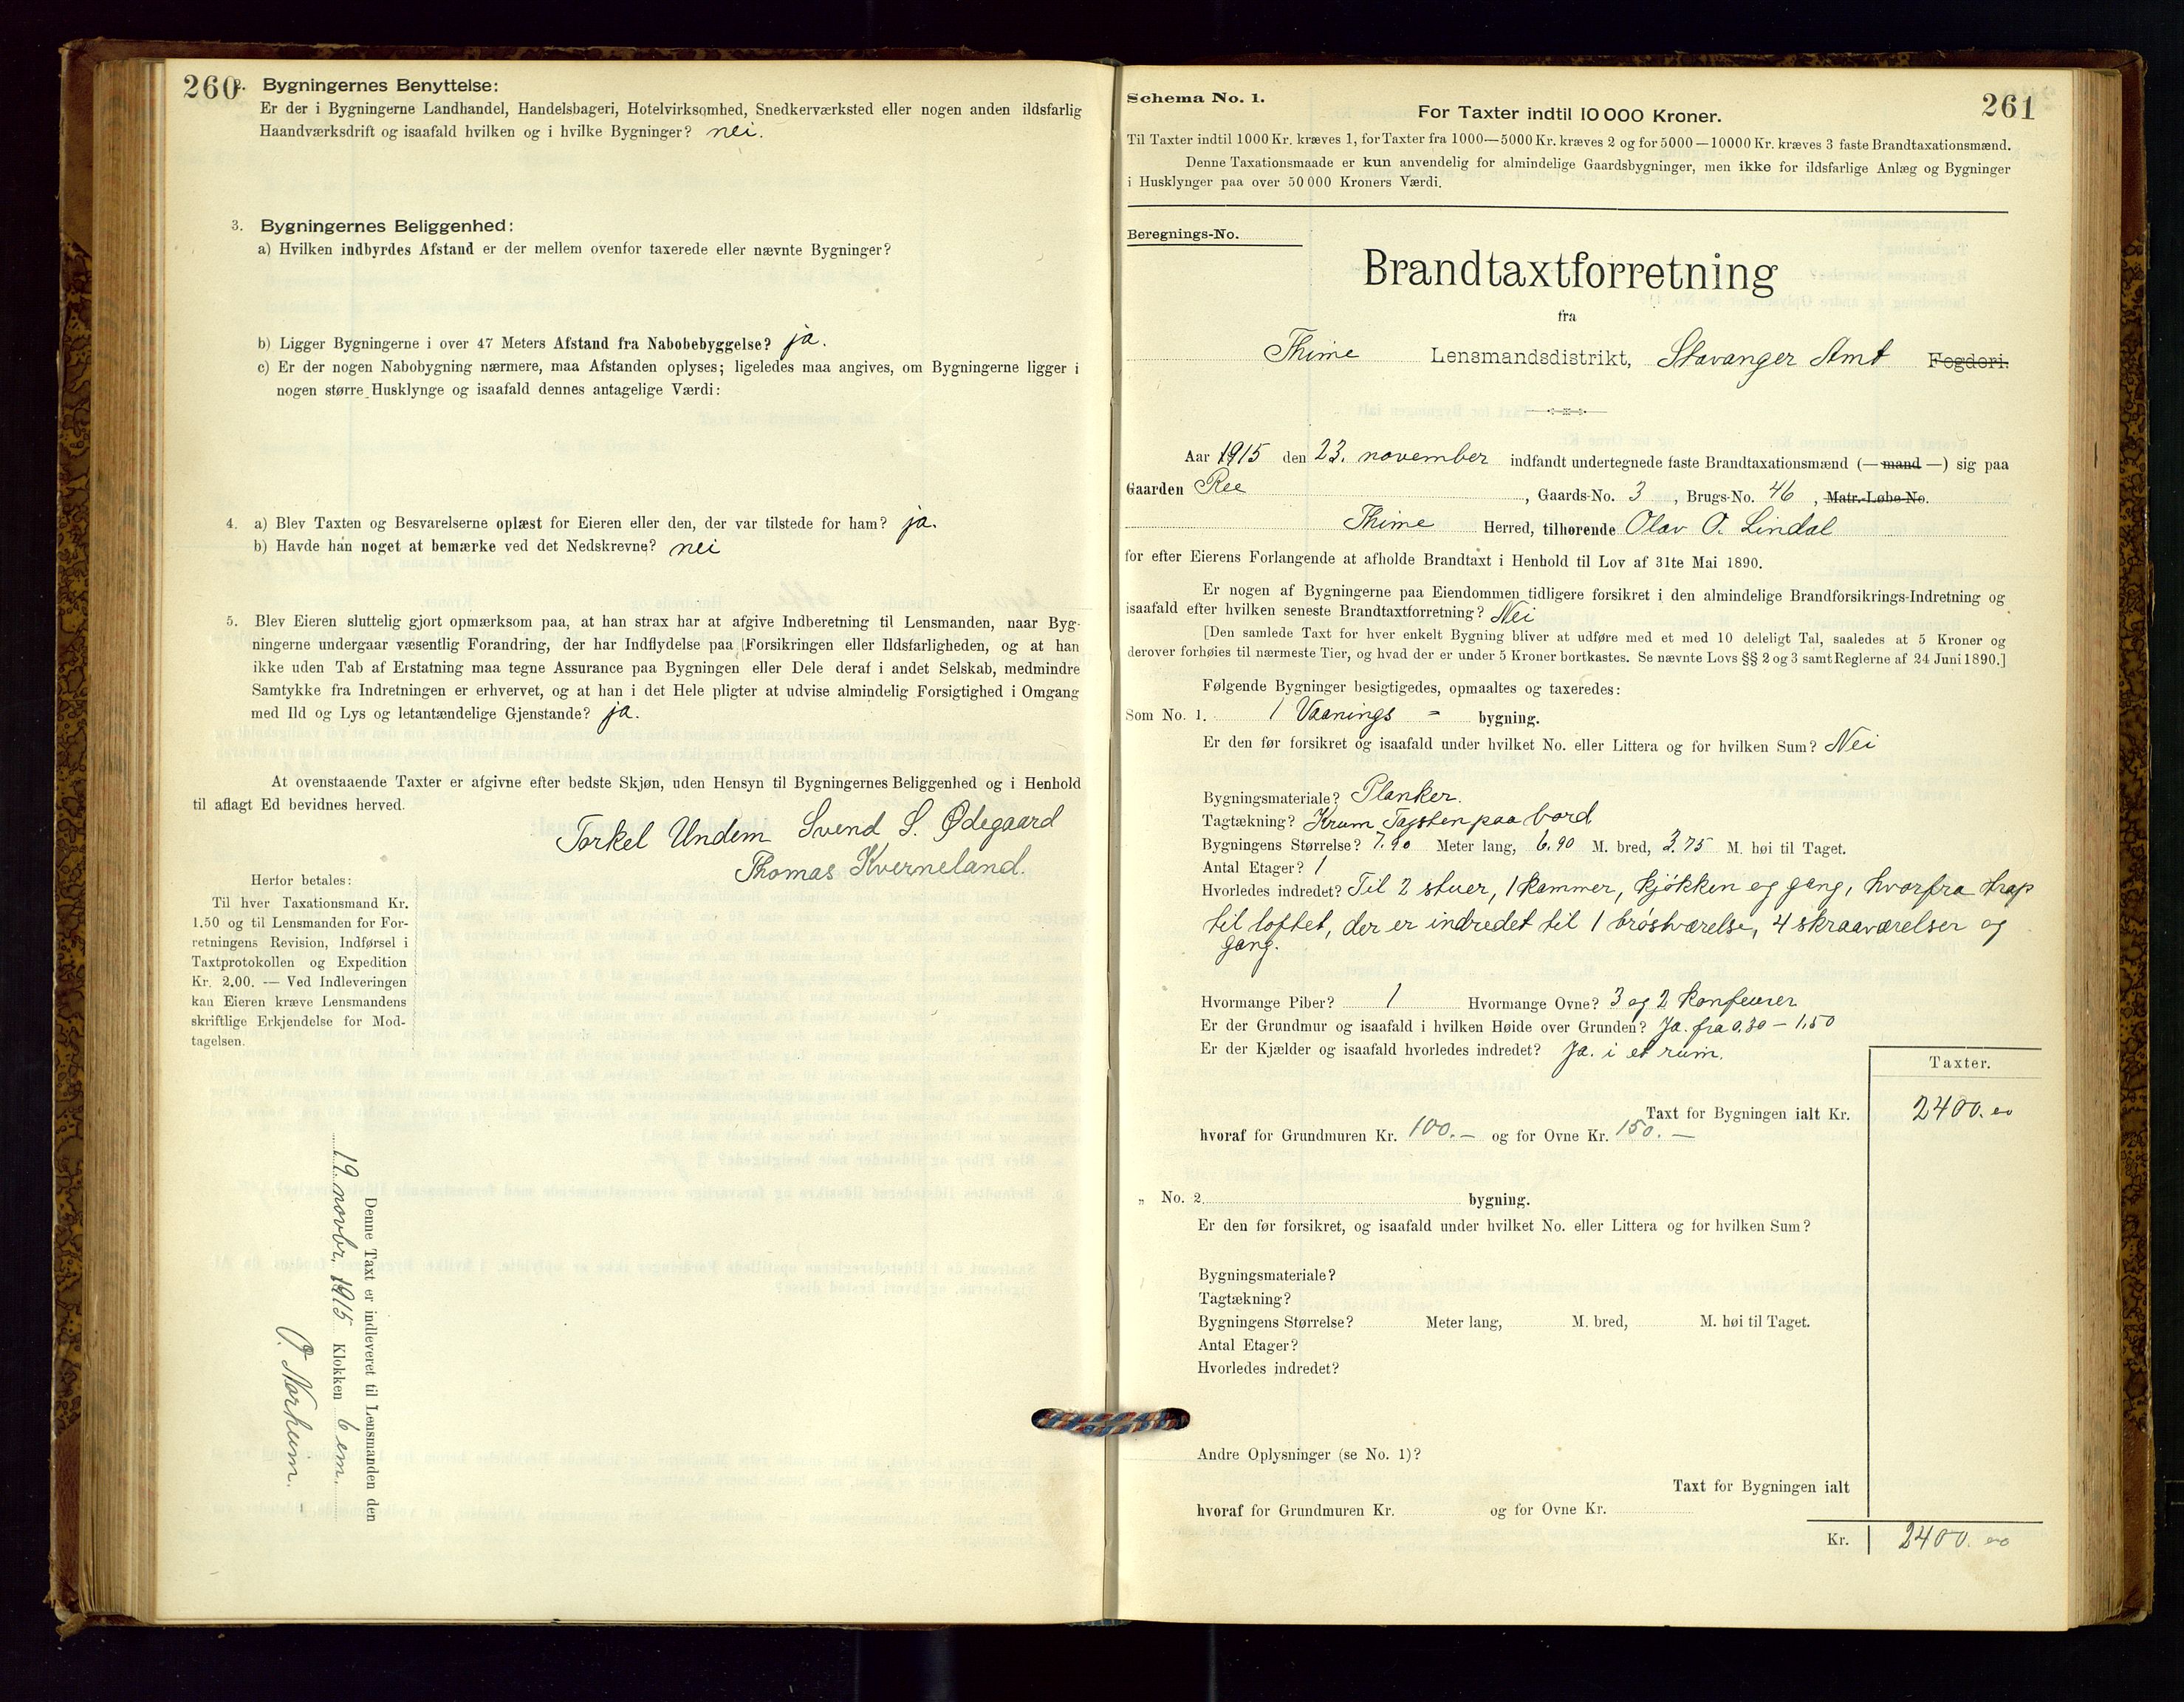 260
2. Bygningernes Benyttelse:
Er der i Bygningerne Landhandel, Handelsbageri, Hotelvirksomhed, Snedkerværksted eller nogen anden ildsfarlig
Haandværksdrift og isaafald hvilken og i hvilke Bygninger? nei.
3. Bygningernes Beliggenhed:
a) Hvilken indbyrdes Afstand er der mellem ovenfor taxerede eller nævnte Bygninger?
b) Ligger Bygningerne i over 47 Meters Afstand fra Nabobebyggelse? ja.
c) Er der nogen Nabobygning nærmere, maa Afstanden oplyses; ligeledes maa angives, om Bygningerne ligger i
nogen større Husklynge og isaafald dennes antagelige Værdi:
4. a) Blev Taxten og Besvarelserne oplæst for Eieren eller den, der var tilstede for ham? ja.
b) Havde han noget at bemærke ved det Nedskrevne? nei
5. Blev Eieren sluttelig gjort opmærksom paa, at han strax har at afgive Indberetning til Lensmanden, naar Byg-
ningerne undergaar væsentlig Forandring, der har Indflydelse paa Forsikringen eller Ildsfarligheden, og at han
ikke uden Tab af Erstatning maa tegne Assurance paa Bygningen eller Dele deraf i andet Selskab, medmindre
Samtykke fra Indretningen er erhvervet, og at han i det Hele pligter at udvise almindelig Forsigtighed i Omgang
med Ild og Lys og letantændelige Gjenstande? ja.
At ovenstaaende Taxter er afgivne efter bedste Skjøn, uden Hensyn til Bygningernes Beliggenhed og i Henhold
til aflagt Ed bevidnes herved.
Torkel Undem Svend S. Ødegaard
Thomas Kverneland.
Herfor betales:
Til hver Taxationsmand Kr.
1.50 og til Lensmanden for For-
retningens Revision, Indførsel i
Taxtprotokollen og Expedition
Kr. 2.00. — Ved Indleveringen
kan Eieren kræve Lensmandens
skriftlige Erkjendelse for Mod-
tagelsen.
Denne Taxt er indleveret til Lensmanden den
19. novbr. 1915 Klokken 6 em.
O. Norheim.
261
Schema No. 1.
For Taxter indtil 10 000 Kroner.
Til Taxter indtil 1000 Kr. kræves 1, for Taxter fra 1000—5000 Kr. kræves 2 og for 5000—10000 Kr. kræves 3 faste Brandtaxationsmænd.
Denne Taxationsmaade er kun anvendelig for almindelige Gaardsbygninger, men ikke for ildsfarlige Anlæg og Bygninger
i Husklynger paa over 50 000 Kroners Værdi.
Beregnings-No.
Brandtaxtforretning
fra
Thime Lensmandsdistrikt, Stavanger Amt Fogderi.
Aar 1915 den 23. november indfandt undertegnede faste Brandtaxationsmænd (— mand —) sig paa
Gaarden Ree, Gaards-No. 3, Brugs-No. 46, Matr.-Løbe-No.
Thime Herred, tilhørende Olav O. Lindal
for efter Eierens Forlangende at afholde Brandtaxt i Henhold til Lov af 31te Mai 1890.
Er nogen af Bygningerne paa Eiendommen tidligere forsikret i den almindelige Brandforsikrings-Indretning og
isaafald efter hvilken seneste Brandtaxtforretning? Nei
[Den samlede Taxt for hver enkelt Bygning bliver at udføre med et med 10 deleligt Tal, saaledes at 5 Kroner og
derover forhøies til nærmeste Tier, og hvad der er under 5 Kroner bortkastes. Se nævnte Lovs §§ 2 og 3 samt Reglerne af 24 Juni 1890.]
Følgende Bygninger besigtigedes, opmaaltes og taxeredes:
Som No. 1. 1 Vaanings - bygning.
Er den før forsikret og isaafald under hvilket No. eller Littera og for hvilken Sum? Nei
Bygningsmateriale? Planker.
Tagtækning? Krum Tagsten paa bord
Bygningens Størrelse? 7.90 Meter lang, 6.90 M. bred, 3.75 M. høi til Taget.
Antal Etager? 1
Hvorledes indredet? Til 2 stuer, 1 kammer, kjøkken og gang, hvorfra trap
til loftet, der er indredet til 1 brøstværelse, 4 skraaværelser og
gang.
Hvormange Piber? 1 Hvormange Ovne? 3 og 2 komfeurer
Er der Grundmur og isaafald i hvilken Høide over Grunden? Ja. fra 0,30 – 1,50
Er der Kjælder og isaafald hvorledes indredet? Ja. i et rum.
Taxter.
Taxt for Bygningen ialt Kr. 2400. 00
hvoraf for Grundmuren Kr. 100. — og for Ovne Kr. 150. —
„ No. 2. bygning.
Er den før forsikret, og isaafald under hvilket No. eller Littera og for hvilken Sum?
Bygningsmateriale?
Tagtækning?
Bygningens Størrelse? Meter lang, M. bred, M. høi til Taget.
Antal Etager?
Hvorledes indredet?
Andre Oplysninger (se No. 1)?
Taxt for Bygningen ialt
hvoraf for Grundmuren Kr. og for Ovne Kr.
Kr. 2400. 00